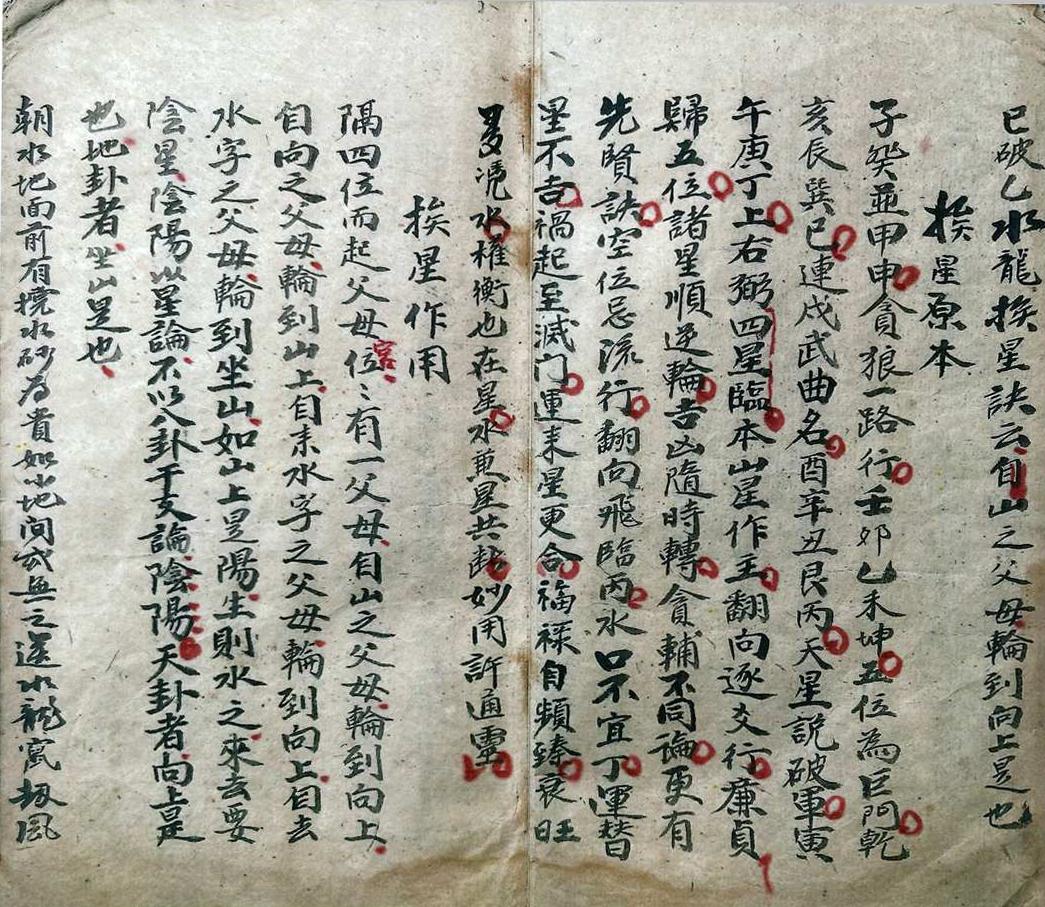 已破乙水龍挨星訣云自山之父母輪到向上是也
挨星原本
子癸並甲申貪狼一路行壬卯乙未坤五位為巨門乾
亥辰巽巳連戌武曲名酉辛丑艮丙天星說破軍寅
午庚丁上右弼四星臨本山星作主翻向逐爻行廉貞
歸五位諸星順逆輪吉凶隨時轉貪輔不同論更有
先賢訣空位忌流行翻向飛臨丙水口不宜丁運替
星不吉禍起至滅門運来星更合福祿自頻臻衰旺
多凴水權衡也在星水兼星共斷妙用許通靈
挨星作用
隔四位而起父母宮位〻有一父母自山之父母輪到向上
自向之父母輪到山上自来水字之父母輪到向上自去
水字之父母輪到坐山如山上是陽生則水之來去要
陰星陰陽以星論不以八卦干支論陰陽天卦者向上是
也地卦者坐山是也
朝水地面前有撓水砂為貴如地间或無之送水龍窩切風